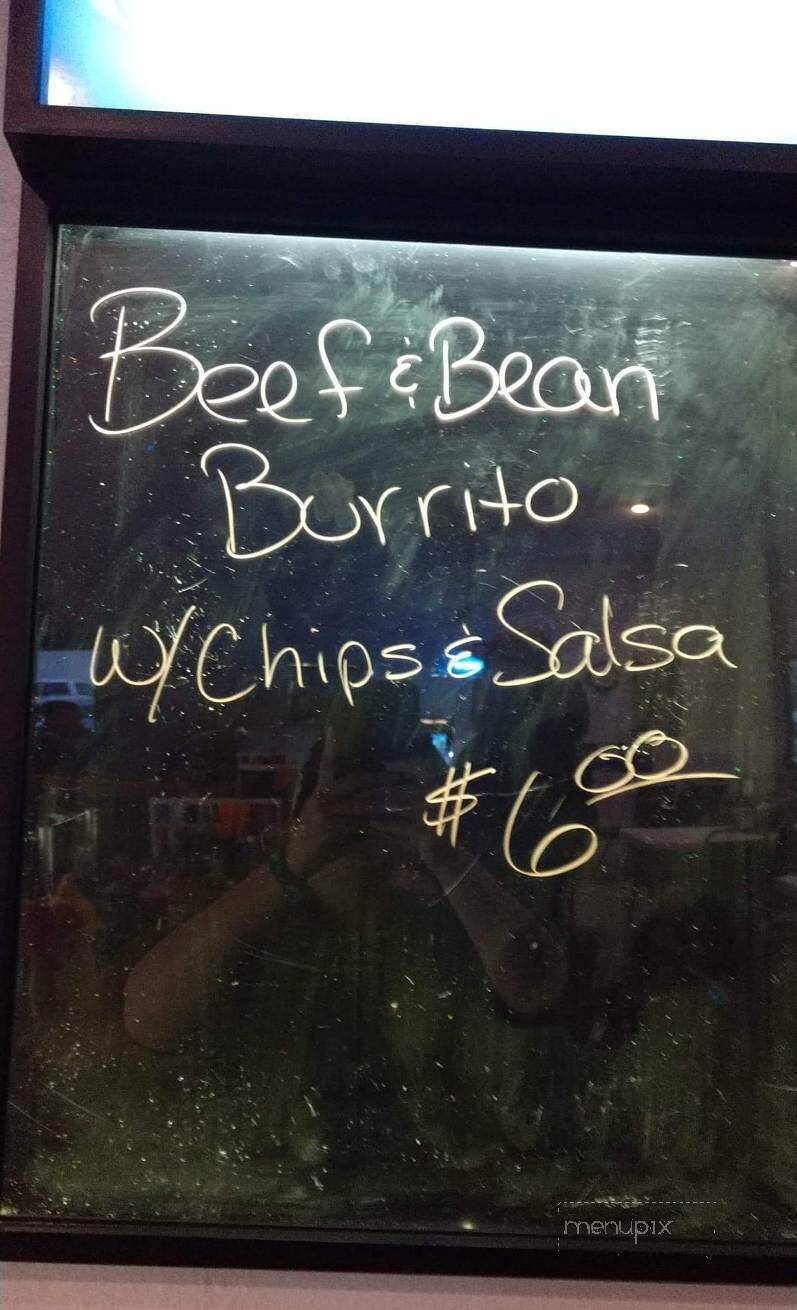 Beef & Bean
Burrito
w/ Chips & Salsa
$6.00
menupix